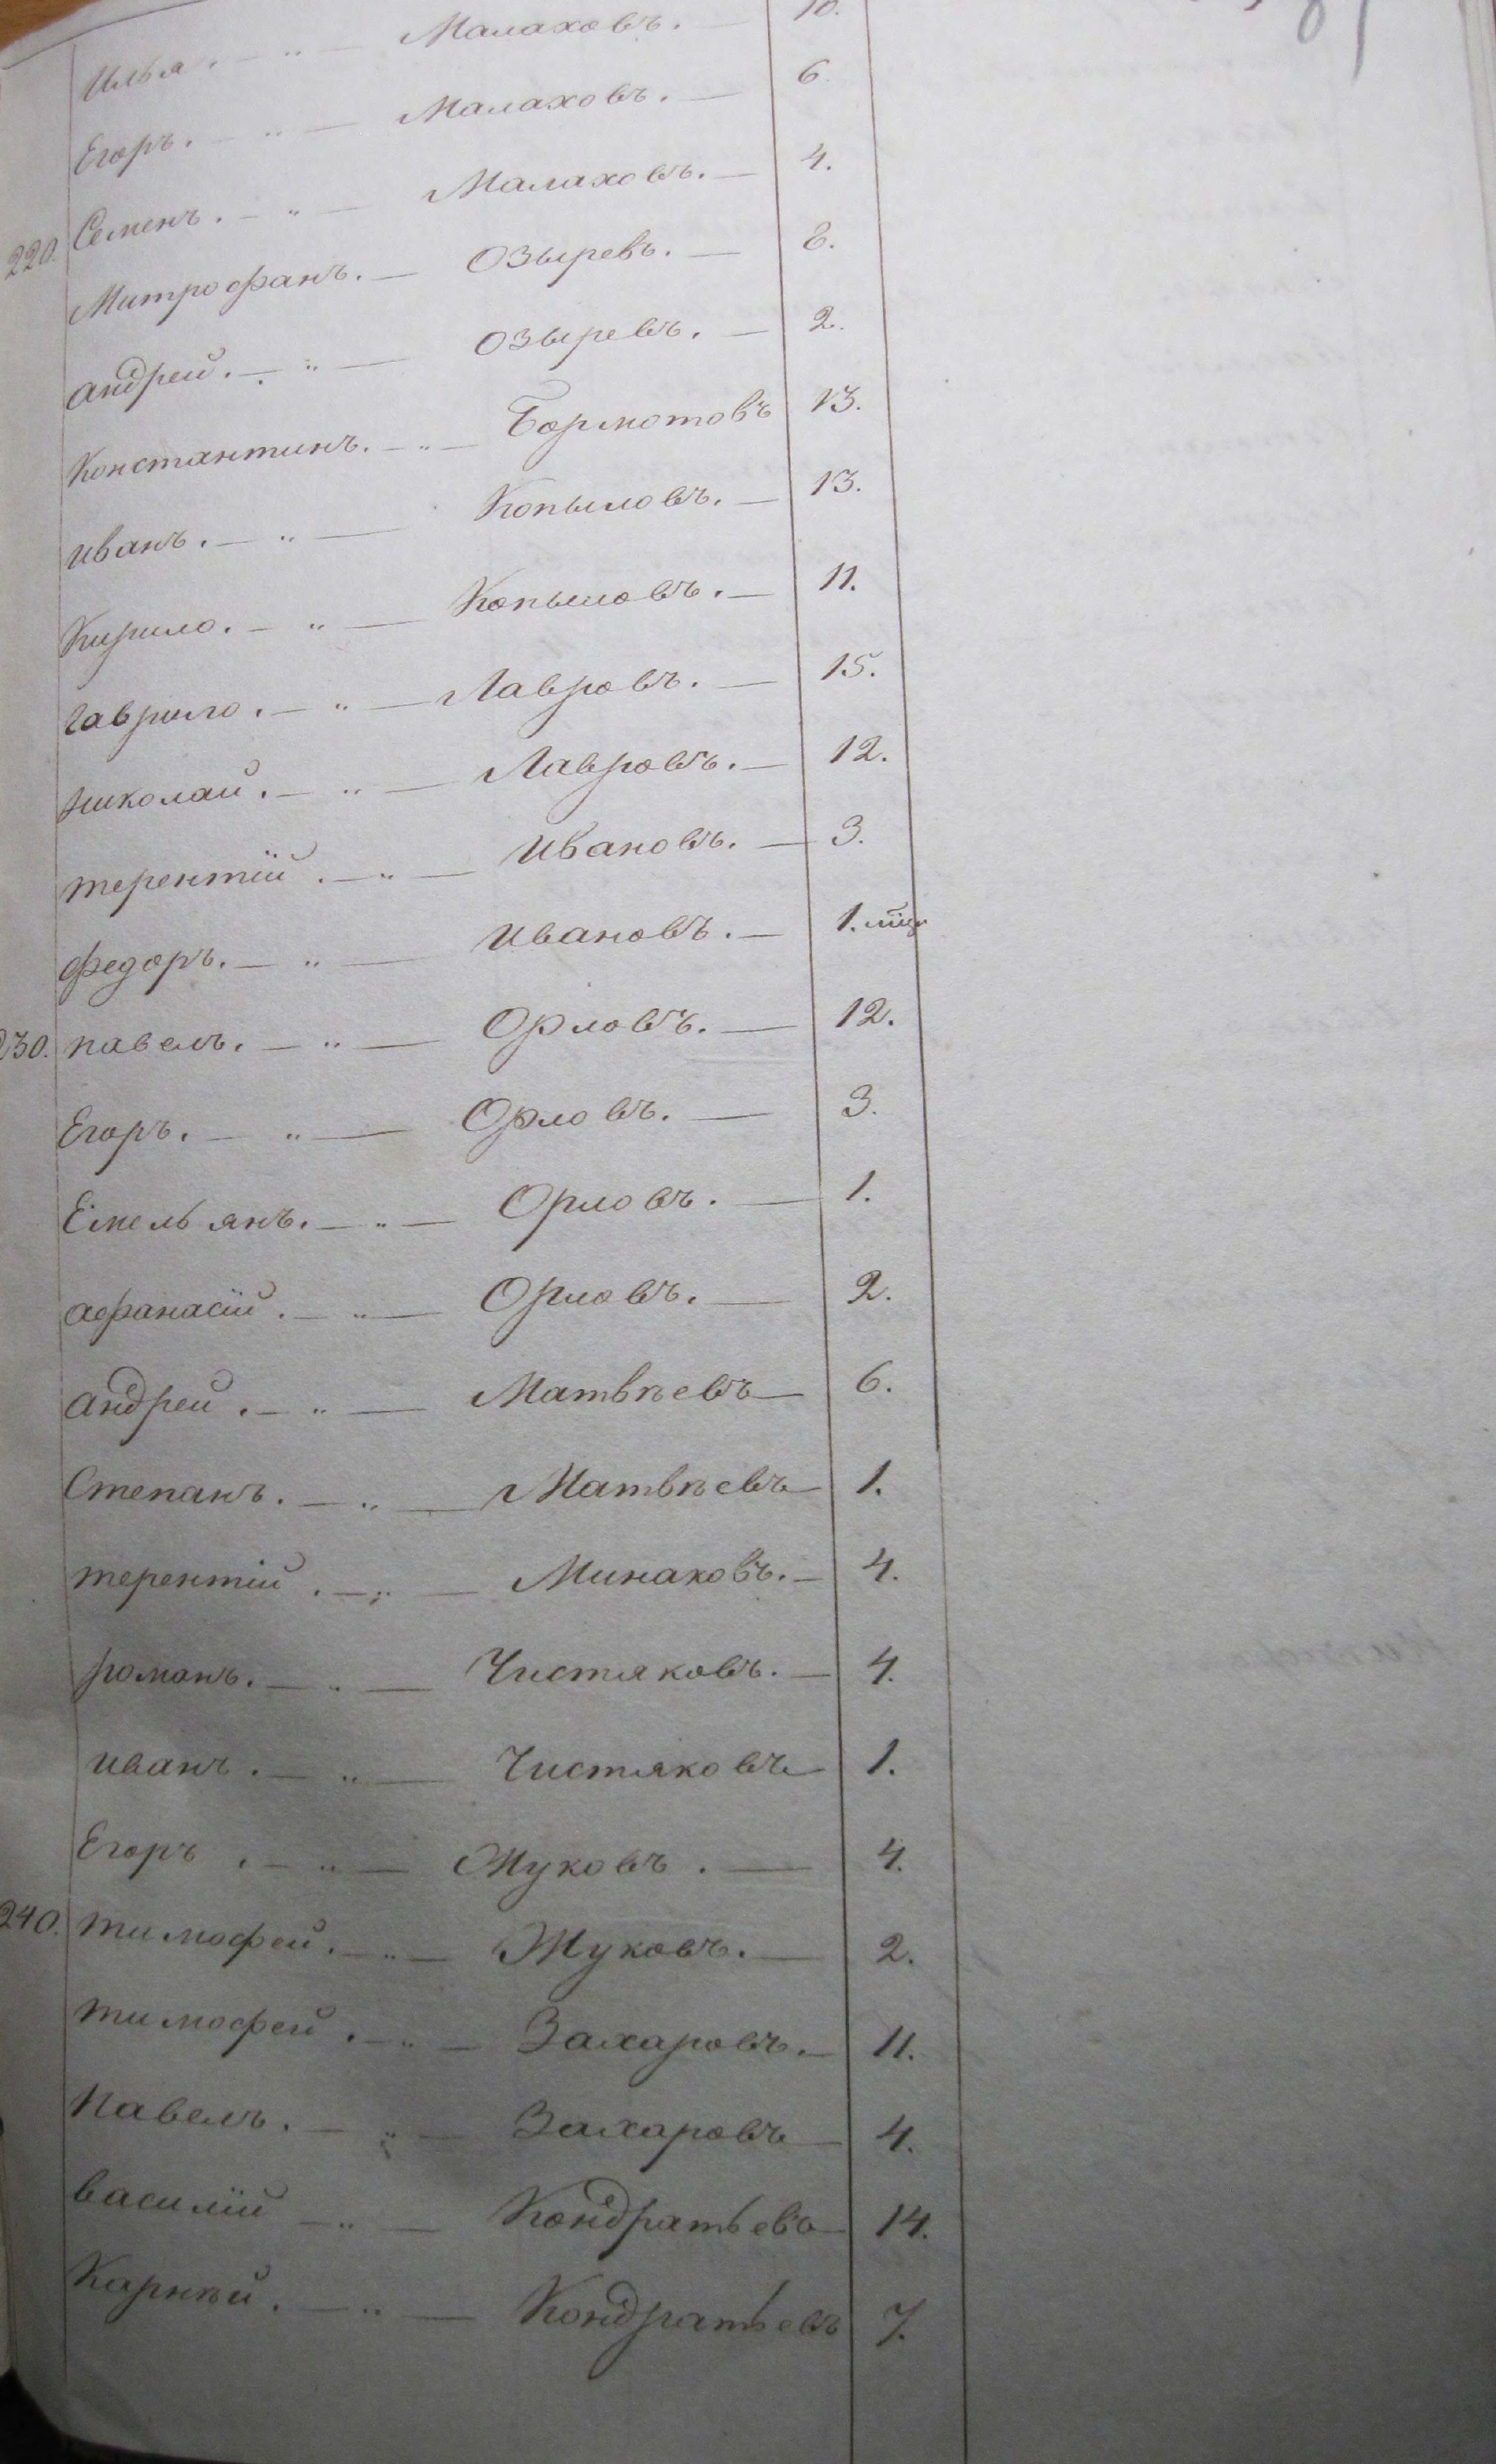 Илья. — „ — Малаховъ. — 10.
Егоръ. — „ — Малаховъ. — 6.
Семенъ. — „ — Малаховъ. — 4.
220. Митрофанъ. — Озыревъ. — 8.
андрей. — „ — Озыревъ. — 2.
Константинъ. — „ — Бормотовъ 13.
иванъ. — „ — Копыловъ. — 13.
Кирило. — „ — Копыловъ. — 11.
гаврило. — „ — Лавровъ. — 15.
николай. — „ — Лавровъ. — 12.
терентiй. — „ — Ивановъ. — 3.
федоръ. — „ — Ивановъ. — 1.
230. павелъ. — „ — Орловъ. — 12.
Егоръ. — „ — Орловъ. — 3.
Емельянъ. — „ — Орловъ. — 1.
афанасiй. — „ — Орловъ. — 2.
андрей. — „ — Матвѣевъ — 6.
Степанъ. — „ — Матвѣевъ — 1.
терентiй. — „ — Минаковъ. — 4.
романъ. — „ — Чистяковъ. — 4.
иванъ. — „ — Чистяковъ — 1.
Егоръ. — „ — Жуковъ. — 4.
240. тимофей. — „ — Жуковъ. — 2.
тимофей. — „ — Захаровъ. — 11.
Павелъ. — „ — Захаровъ — 4.
василiй — „ — Кондратьевъ — 14.
Карнѣй. — „ — Кондратьевъ 7.